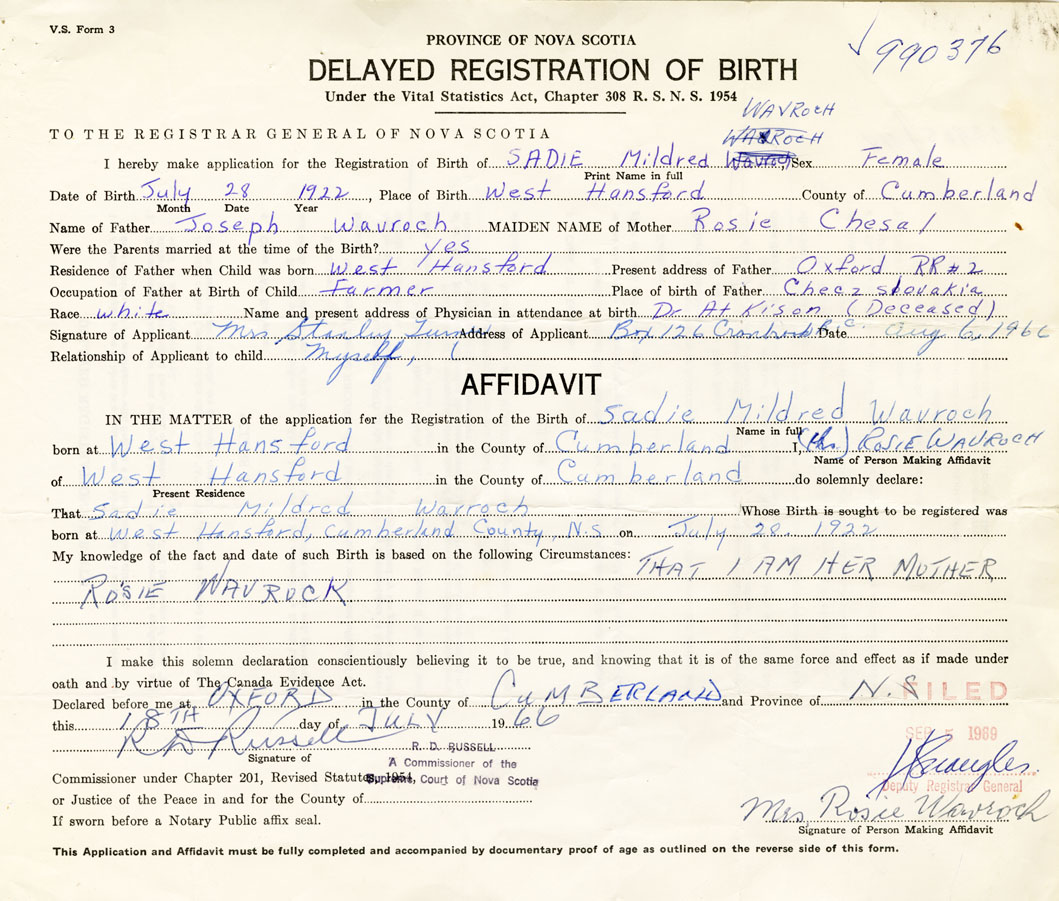 V.S. Form 3
990376
PROVINCE OF NOVA SCOTIA
DELAYED REGISTRATION OF BIRTH
Under the Vital Statistics Act, Chapter 308 R. S. N. S. 1954
WAVROCH
TO THE REGISTRAR GENERAL OF NOVA SCOTIA
I hereby make application for the Registration of Birth of SADIE Mildred Sex Female
Print Name in full
Date of Birth July 28 1922, Place of Birth West Hansford County of Cumberland
Month Date Year
Name of Father Joseph Wavroch MAIDEN NAME of Mother Rosie Chesal
Were the Parents married at the time of the Birth? yes
Residence of Father when Child was born West Hansford Present address of Father Oxford RR #2
Occupation of Father at Birth of Child Farmer Place of birth of Father Checz slovakia
Race white Name and present address of Physician in attendance at birth Dr. Atkison (Deceased)
Signature of Applicant Mrs Stanley Address of Applicant Box 126 Date Aug 6, 196
Relationship of Applicant to child Myself,
AFFIDAVIT
IN THE MATTER of the application for the Registration of the Birth of Sadie Mildred Wavroch
Name in full
born at West Hansford in the County of Cumberland I, (Mrs.) ROSIE WAVROCH
Name of Person Making Affidavit
of West Hansford in the County of Cumberland do solemnly declare:
Present Residence
That Sadie Mildred Wavroch Whose Birth is sought to be registered was
born at West Hansford, Cumberland County, N.S on July 28, 1922
My knowledge of the fact and date of such Birth is based on the following Circumstances:
THAT I AM HER MOTHER
ROSIE WAVROCK
I make this solemn declaration conscientiously believing it to be true, and knowing that it is of the same force and effect as if made under
oath and by virtue of The Canada Evidence Act.
Declared before me at OXFORD in the County of CUMBERLAND and Province of N.S
FILED
this 18TH day of JULY 1966
SEP 5 1969
R D Russell
R. D. RUSSELL
Signature of
A Commissioner of the
Commissioner under Chapter 201, Revised Statutes, 1954,
Supreme Court of Nova Scotia
Deputy Registrar General
or Justice of the Peace in and for the County of
Mrs Rosie Wavroch
If sworn before a Notary Public affix seal.
Signature of Person Making Affidavit
This Application and Affidavit must be fully completed and accompanied by documentary proof of age as outlined on the reverse side of this form.